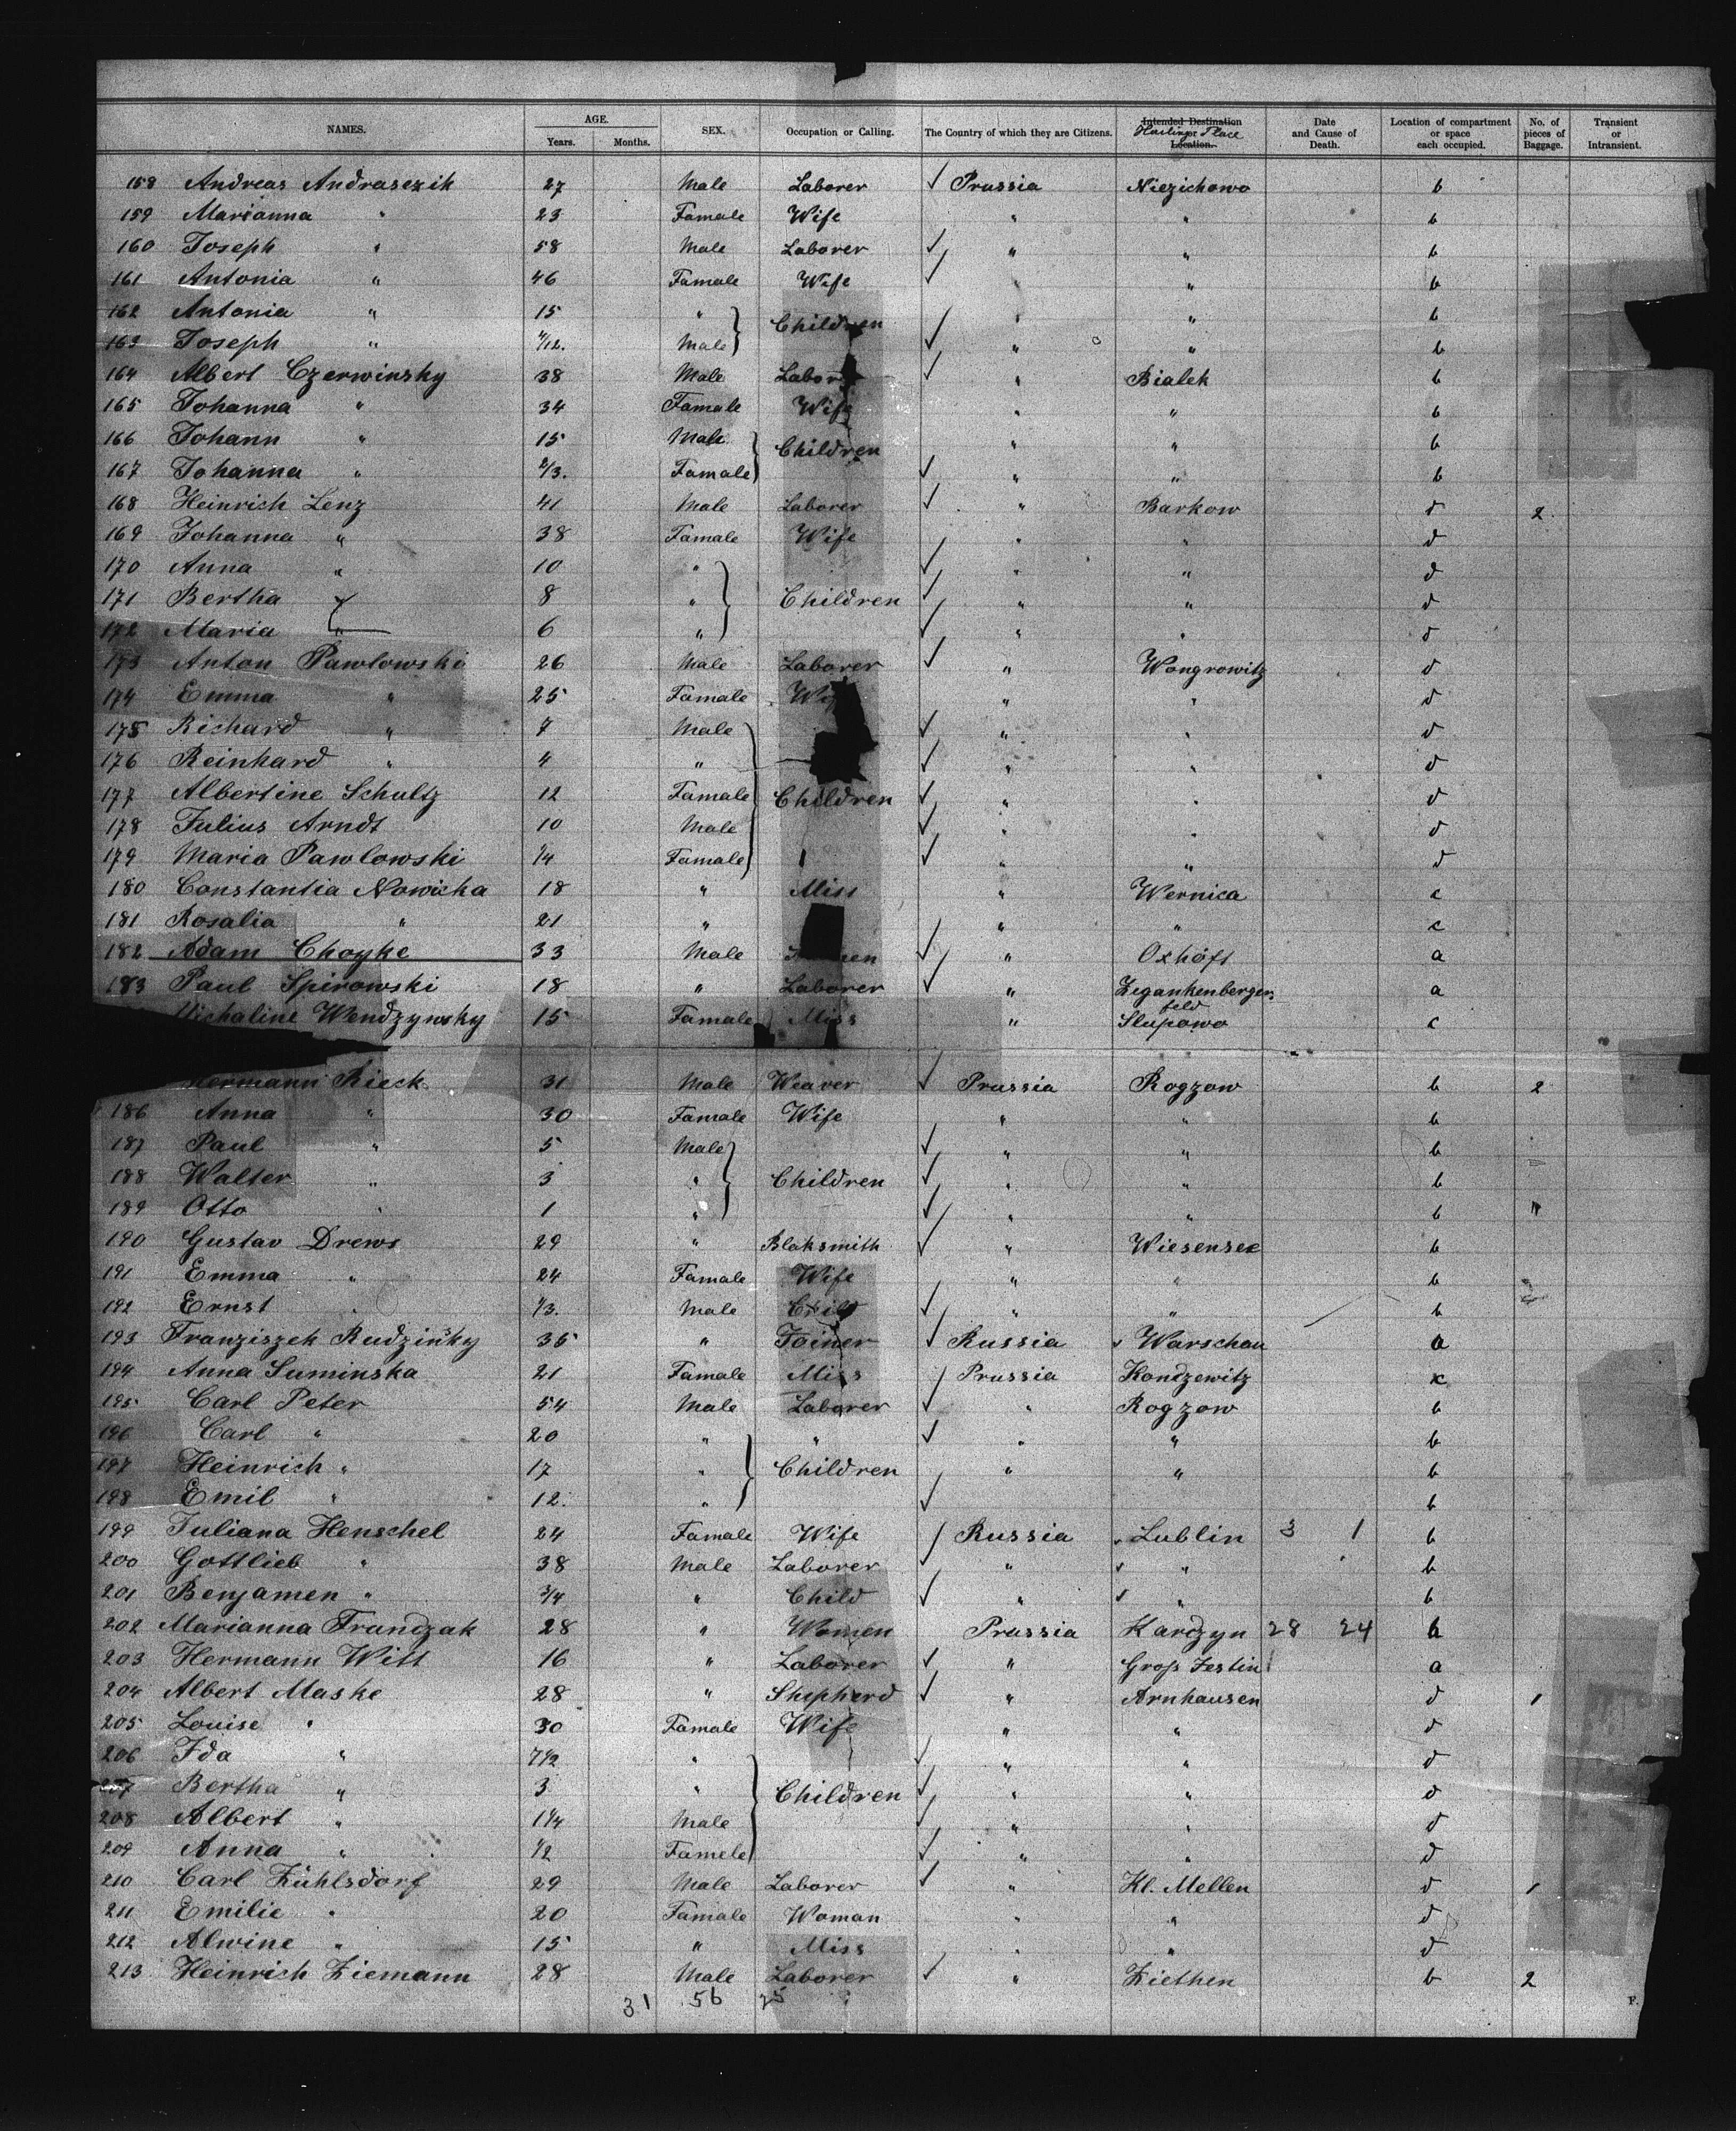 NAMES. AGE. Years. Months. SEX. Occupation or Calling. The Country of which they are Citizens. Intended Destination or Location. Place Date and Cause of Death. Location of compartment or space each occupied. No. of pieces of Baggage. Transient or Intransient.
158 Andreas Andrasezik 27 Male Laborer ✓ Prussia Niezichowo b
159 Marianna " 23 Famale Wife " " b
160 Joseph " 58 Male Laborer ✓ " " b
161 Antonia " 46 Famale Wife ✓ " " b
162 Antonia " 15 " Children " " b
163 Joseph " 4/12. Male ✓ " " b
164 Albert Czerwinsky 38 Male Labor ✓ " Bialek b
165 Johanna " 34 Famale Wife " " b
166 Johann " 15 Male Children " " b
167 Johanna " 2/3. Famale ✓ " " b
168 Heinrich Lenz 41 Male Laborer ✓ " Barkow d 2.
169 Johanna " 38 Famale Wife " " d
170 Anna " 10 " ✓ " " d
171 Bertha " 8 " Children ✓ " " d
172 Maria " 6 " ✓ " " d
173 Anton Pawlowski 26 Male Laborer ✓ " Wongrowitz d
174 Emma " 25 Famale Wif " " d
175 Richard " 7 Male ✓ " " d
176 Reinhard " 4 " ✓ " " d
177 Albertine Schultz 12 Famale Children ✓ " " d
178 Julius Arndt 10 Male ✓ " " d
179 Maria Pawlowski 1/4 Famale ✓ " " d
180 Constantia Nowicka 18 " Miss " Wernica c
181 Rosalia " 21 " " " c
182 Adam Choyke 33 Male ✓ " Oxhöft a
183 Paul Spirowski 18 " Laborer ✓ " Zegankenberger feld a
Michaline Wendzynsky 15 Famale Miss " Slupowo c
Hermann Rieck 31 Male Weaver ✓ Prussia Rogzow b 2
186 Anna " 30 Famale Wife " " b
187 Paul " 5 Male ✓ " " b
188 Walter " 3 " Children ✓ " " b
189 Otto " 1 " ✓ " " b "
190 Gustav Drews 29 " Blaksmith ✓ " Wiesensee b
191 Emma " 24 Famale Wife " " b
192 Ernst " 1/3. Male Child ✓ " " b
193 Franziszek Rudzinsky 35 " Joiner ✓ Russia Warschau a
194 Anna Suminska 21 Famale Miss Prussia Kondzewitz c
195 Carl Peter 54 Male Laborer ✓ " Rogzow b
196 Carl " 20 " " ✓ " " b
197 Heinrich " 17 " Children " " b
198 Emil " 12. " ✓ b
199 Juliana Henschel 24 Famale Wife Russia Lublin 3 1 b
200 Gottlieb " 38 Male Laborer ✓ " " b
201 Benjamen " 3/4 " Child ✓ " " b
202 Marianna Frandzak 28 " Women Prussia Kardzyn 28 24 b
203 Hermann Witt 16 " Laborer ✓ " Gross Jestin a
204 Albert Maske 28 " Shepherd ✓ " Arnhausen d 1
205 Louise " 30 Famale Wife " " d
206 Ida " 7 1/2 " ✓ " " d
207 Bertha " 3 " Children ✓ " " d
208 Albert " 1 1/4 Male ✓ " " d
209 Anna " 1/2 Famele ✓ " " d
210 Carl Zühlsdorf 29 Male Laborer ✓ " Kl. Mellen d 1
211 Emilie " 20 Famale Woman " " d
212 Alwine " 15 " Miss " " d
213 Heinrich Ziemann 28 Male Laborer ✓ " Ziethen b 2
31 56 25
F.